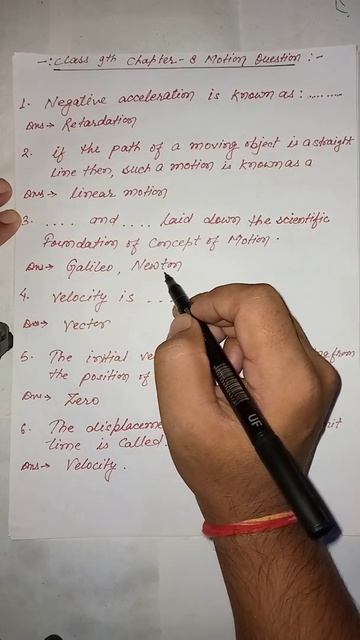 -: Class 9th Chapter - 8 Motion Question :-
1. Negative acceleration is known as : ........
Ans → Retardation
2. if the path of a moving object is a straight
line then, such a motion is known as a
Ans → linear motion
3. .... and .... laid down the scientific
Foundation of Concept of Motion.
Ans → Galileo, Newton
4. Velocity is ...
Ans → Vector
5. The initial ve
from
the position of
Ans → Zero
6. The displaceme
time is called.
Ans → Velocity.
UF